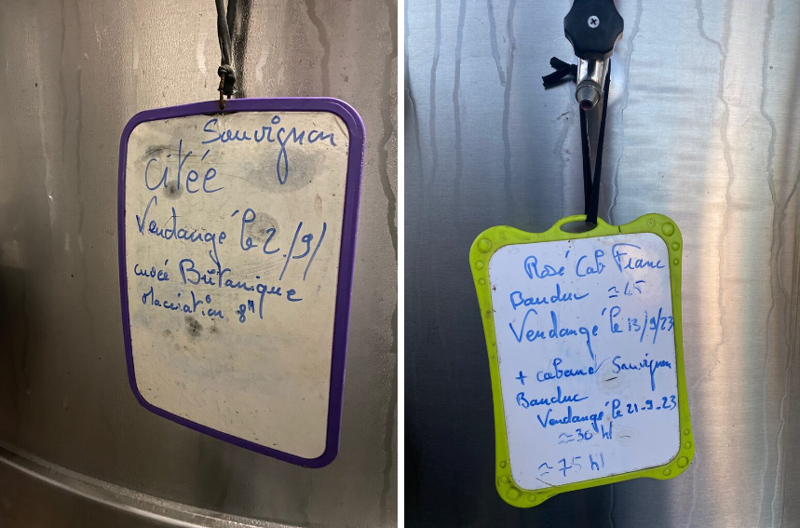 Sauvignon
citée
Vendangé le 2/9/
cuvée Bŭtanique
Macération 8H
Rosé Cab Franc
Bauduc ≃ 45
Vendangé le 13/9/23
+ cabanet Sauvignon
Bauduc
Vendangé le 21-9-23
≃ 30 hl
≃ 75 hl